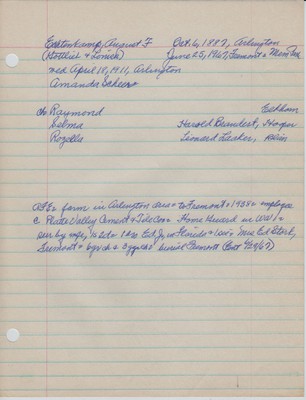 Echtenkamp, August F Oct. 6, 1887, Arlington
(Gottlieb & Louise) June 25, 1967, Fremont
wed April 18, 1911, Arlington
Amanda Scheer
ch Raymond Elkhorn
Selma Harold Brandert, Hooper
Rozella Leonard
farm in Arlington area to Fremont 1938 employee
c Platte Valley Cement & Tile Co Home Guard in WW I
sur by wife, 1s 2d 1 bro Ed, in Florida & 1 sis Mrs Ed
Fremont 6grch 2 ggrch burial Fremont